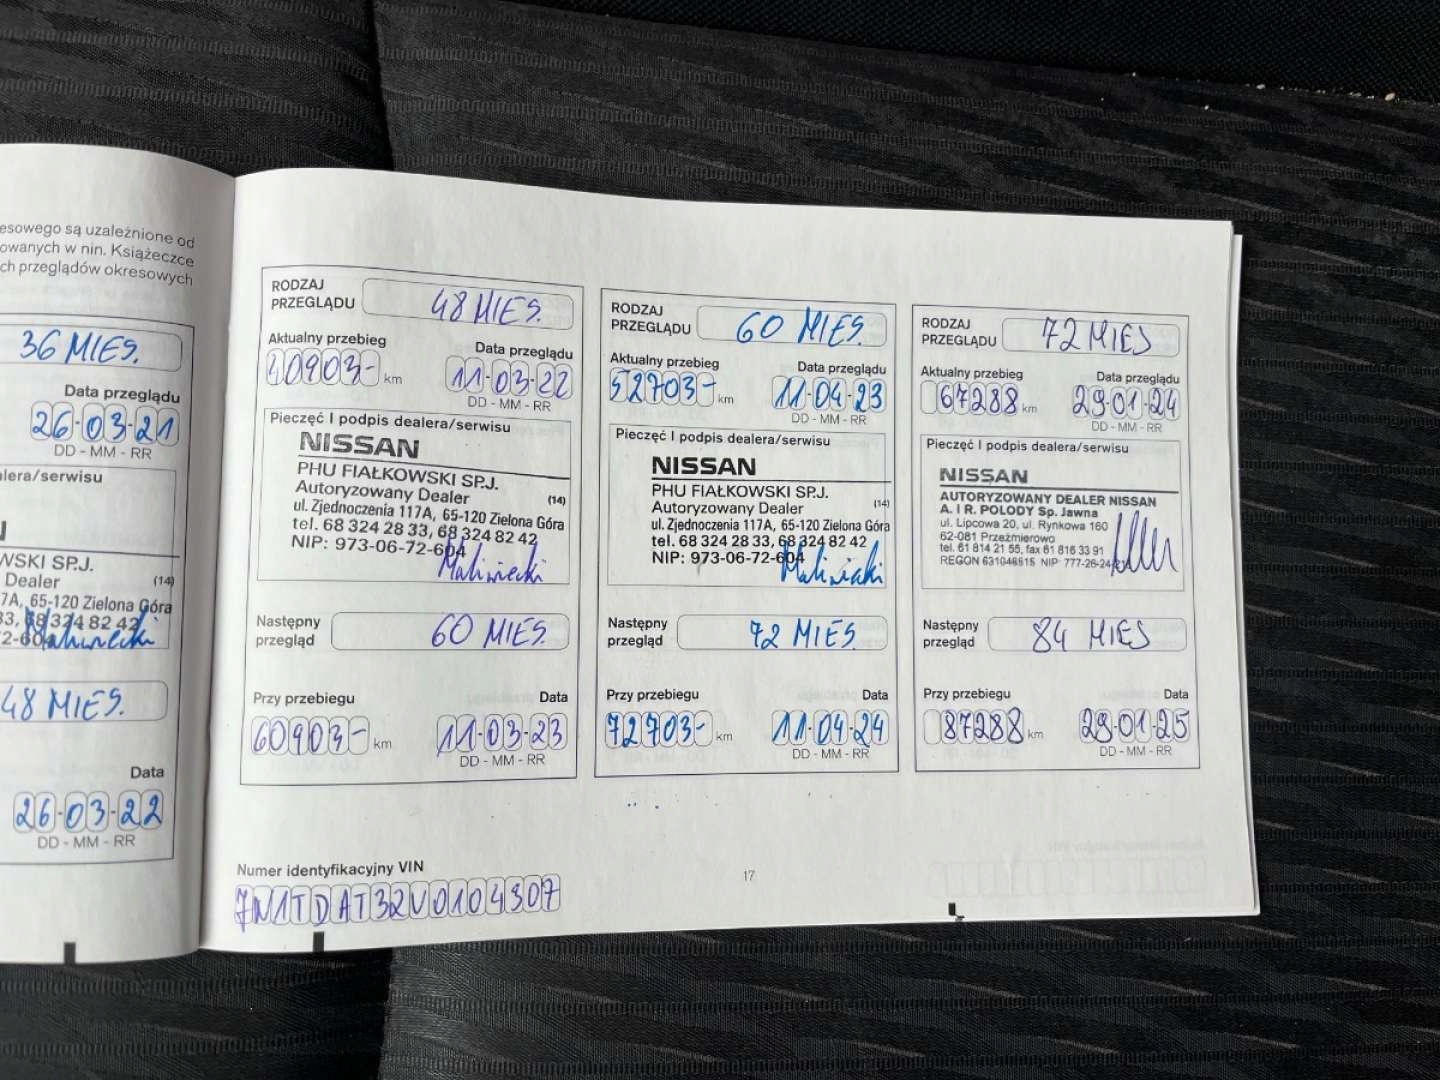 esowego są uzależnione od
owanych w nin. Książeczce
ch przeglądów okresowych
36 MIES.
Data przeglądu
26-03-21
DD - MM - RR
alera/serwisu
WSKI SP.J.
Dealer (14)
7A, 65-120 Zielona Góra
33, 68 324 82 42
2-604
48 MIES.
Data
26-03-22
DD - MM - RR
RODZAJ
PRZEGLĄDU 48 MIES.
Aktualny przebieg Data przeglądu
40903- km 11-03-22
DD - MM - RR
Pieczęć I podpis dealera/serwisu
NISSAN
PHU FIAŁKOWSKI SP.J.
Autoryzowany Dealer (14)
ul. Zjednoczenia 117A, 65-120 Zielona Góra
tel. 68 324 28 33, 68 324 82 42
NIP: 973-06-72-604
Następny
przegląd 60 MIES.
Przy przebiegu Data
60903- km 11-03-23
DD - MM - RR
RODZAJ
PRZEGLĄDU 60 MIES.
Aktualny przebieg Data przeglądu
52703- km 11-04-23
DD - MM - RR
Pieczęć I podpis dealera/serwisu
NISSAN
PHU FIAŁKOWSKI SP.J.
Autoryzowany Dealer (14)
ul. Zjednoczenia 117A, 65-120 Zielona Góra
tel. 68 324 28 33, 68 324 82 42
NIP: 973-06-72-604
Następny
przegląd 72 MIES.
Przy przebiegu Data
72703- km 11-04-24
DD - MM - RR
RODZAJ
PRZEGLĄDU 72 MIES
Aktualny przebieg Data przeglądu
67288 km 29-01-24
DD - MM - RR
Pieczęć I podpis dealera/serwisu
NISSAN
AUTORYZOWANY DEALER NISSAN
A. I R. POLODY Sp. Jawna
ul. Lipcowa 20, ul. Rynkowa 160
62-081 Przeźmierowo
tel. 61 814 21 55, fax 61 816 33 91
REGON 631046515 NIP 777-26-24-
Następny
przegląd 84 MIES
Przy przebiegu Data
87288 km 29-01-25
DD - MM - RR
Numer identyfikacyjny VIN
7N1TDAT32V0104307
17